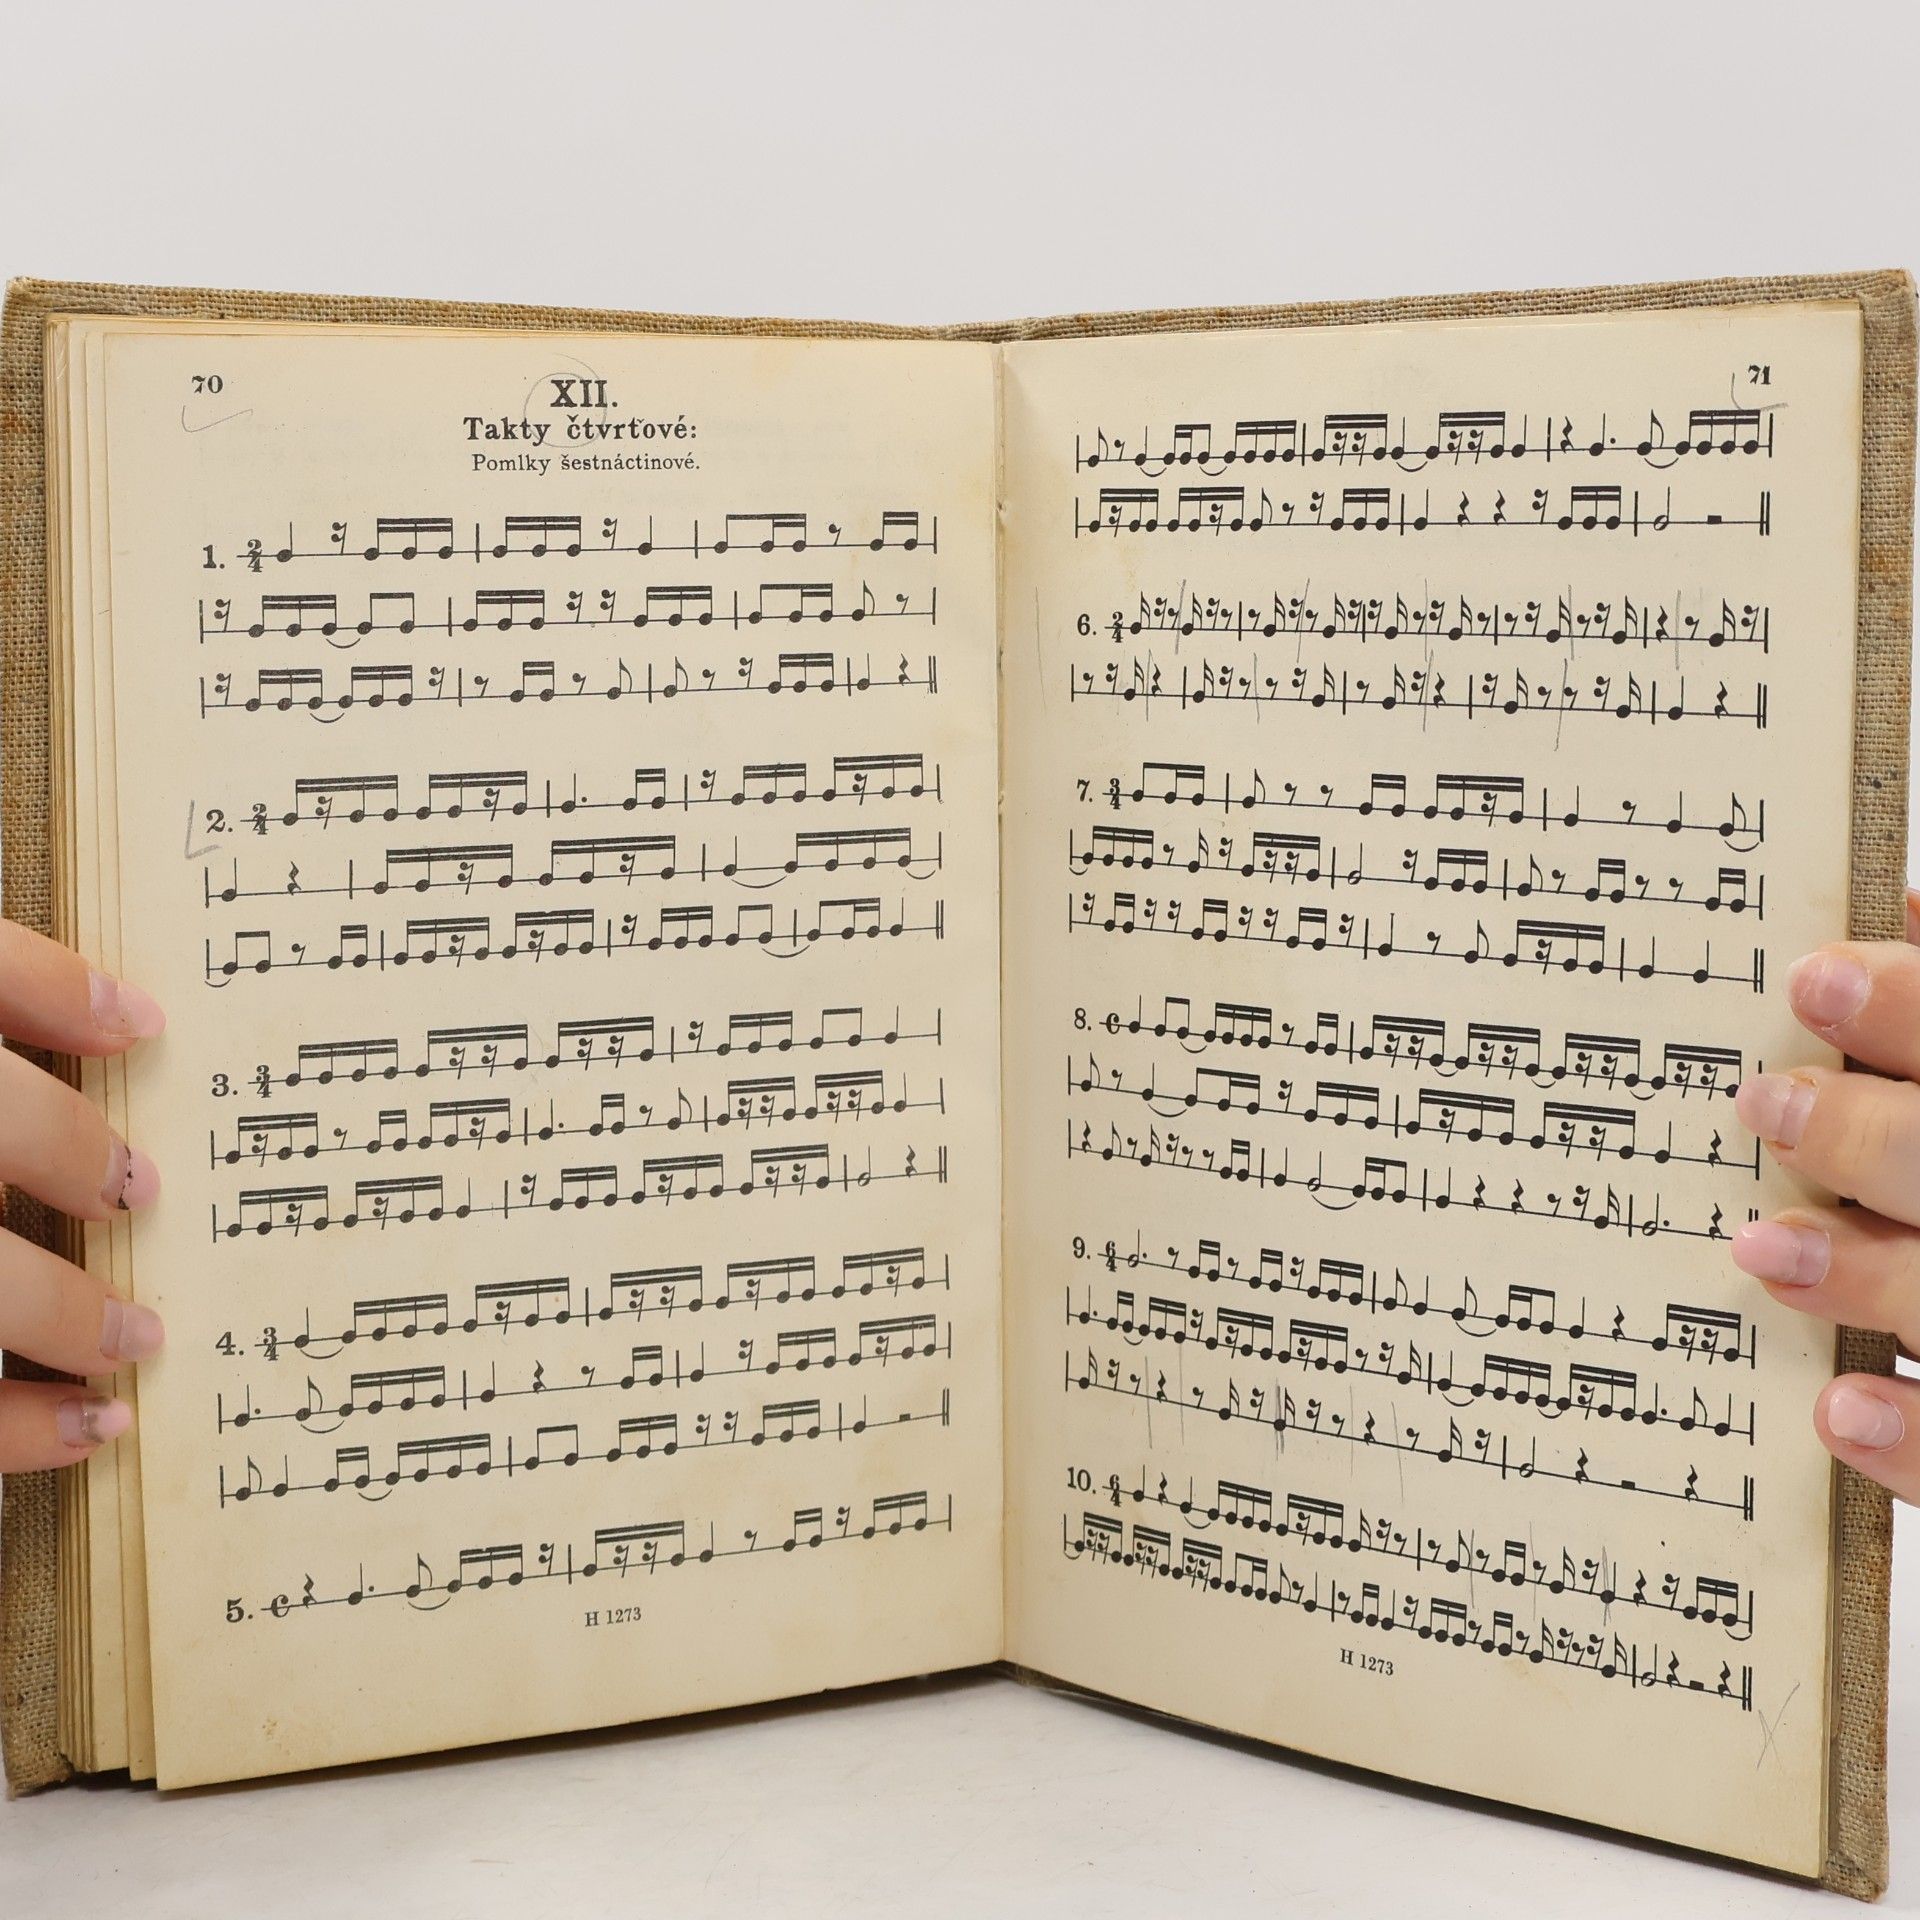 70
XII.
Takty čtvrťové:
Pomlky šestnáctinové.
1. 2/4
2. 2/4
3. 3/4
4. 3/4
5. C
H 1273
71
6. 2/4
7. 3/4
8. C
9. 6/4
10. 6/4
H 1273